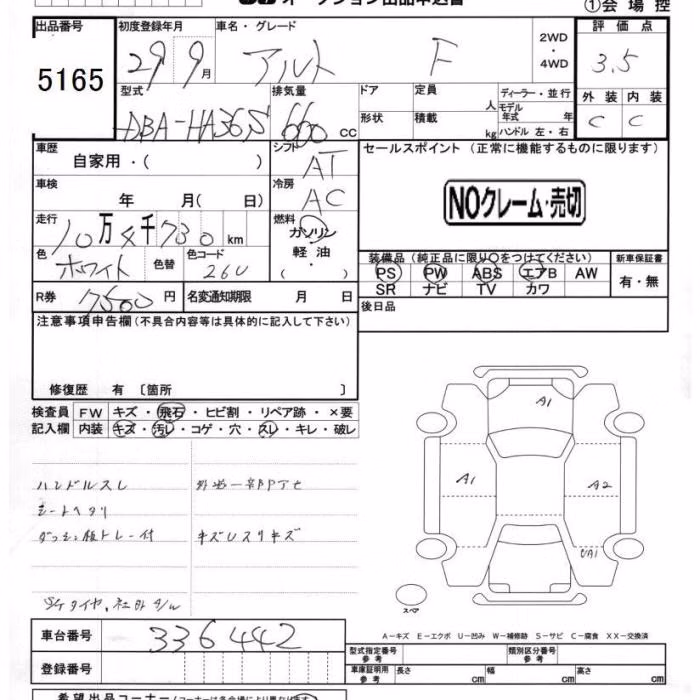 オークション出品申込書
①会場控
出品番号 初度登録年月 車名・グレード 2WD 評価点
5165 29 9月 アルト F ・4WD 3.5
型式 排気量 ドア 定員 人 ディーラー・並行 外装 内装
DBA-HA36S 660 cc 形状 積載 kg モデル年式 年 C C
ハンドル 左・右
車歴 シフト セールスポイント (正常に機能するものに限ります)
自家用・( ) AT
車検 冷房 NOクレーム・売切
年 月( 日) AC
走行 燃料
10万 千730 km ガソリン
色 色替 色コード 軽油 装備品 (純正品に限り○をつけてください) 新車保証書
ホワイト 26U ・( ) PS PW ABS エアB AW 有・無
R券 名変通知期限 月 日 SR ナビ TV カワ
7500円 後日品
注意事項申告欄(不具合内容等は具体的に記入して下さい)
修復歴 有 〔箇所 〕
検査員 FW キズ・飛石・ヒビ割・リペア跡・×要
記入欄 内装 キズ・汚レ・コゲ・穴・スレ・キレ・破レ
A1
ハンドルスレ
シートヘタリ A1 A2
キズUスリキズ
UA1
タイヤ, 社外A/w
スペア
A-キズ E-エクボ U-凹み W-補修跡 S-サビ C-腐食 XX-交換済
車台番号 336442
型式指定番号 参考 類別区分番号 参考
登録番号 車庫証明用 参考 長さ cm 幅 cm 高さ cm
希望出品コーナー(コーナーは各会場により異なります)